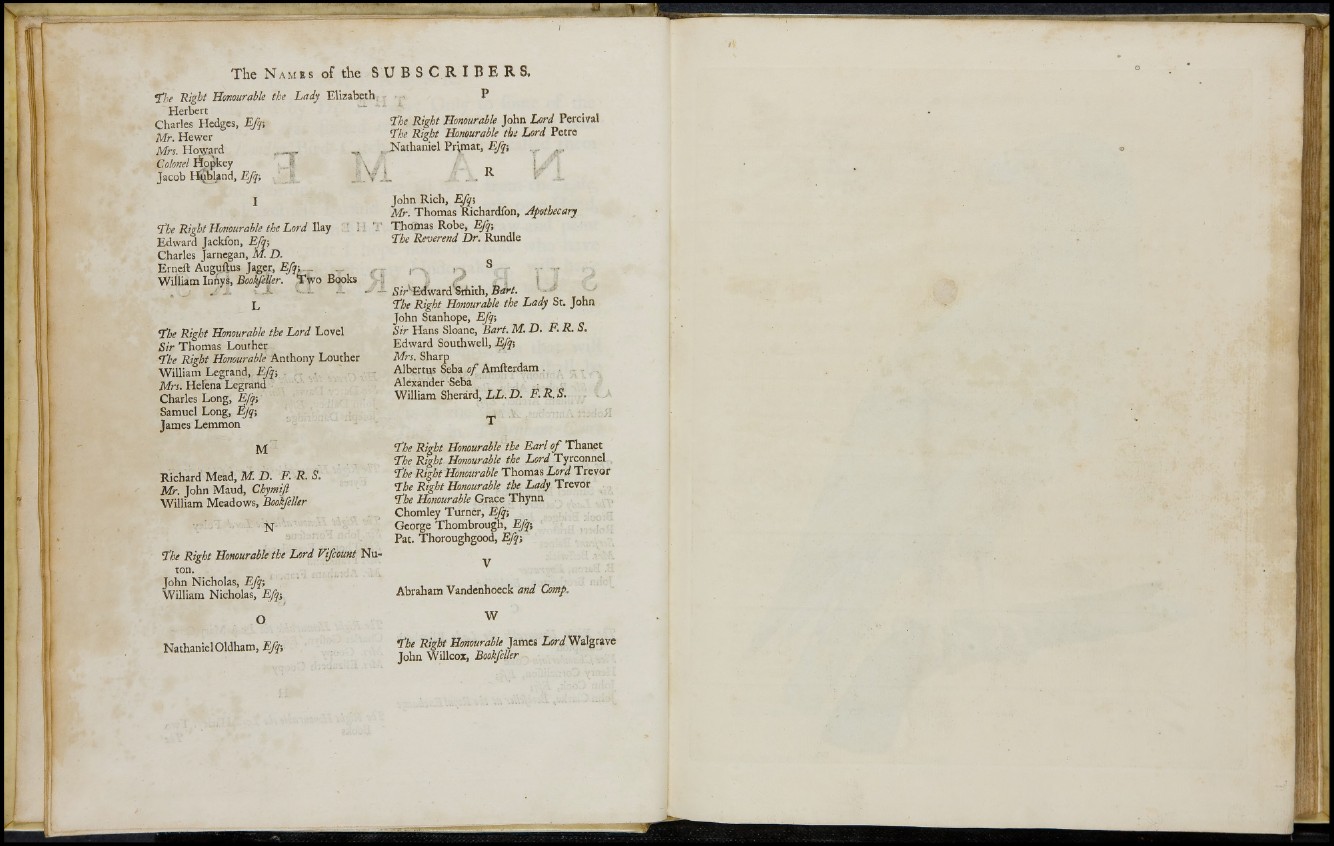 The NAMES of the SUBSCRIBERS.
The Right Honourable the Lady Elizabeth
Herbert
Charles Hedges, Eſq;
Mr. Hewer
Mrs. Howard
Colonel Hopkey
Jacob Hubland, Eſq;
I
The Right Honourable the Lord Ilay
Edward Jackſon, Eſq;
Charles Jarnegan, M. D.
Erneſt Auguſtus Jager, Eſq;
William Innys, Bookſeller. Two Books
L
The Right Honourable the Lord Lovel
Sir Thomas Louther
The Right Honourable Anthony Louther
William Legrand, Eſq;
Mrs. Helena Legrand
Charles Long, Eſq;
Samuel Long, Eſq;
James Lemmon
M
Richard Mead, M. D. F. R. S.
Mr. John Maud, Chymiſt
William Meadows, Bookſeller
N
The Right Honourable the Lord Viſcount Nu-
ton.
John Nicholas, Eſq;
William Nicholas, Eſq;
O
Nathaniel Oldham, Eſq;
P
The Right Honourable John Lord Percival
The Right Honourable the Lord Petre
Nathaniel Primat, Eſq;
R
John Rich, Eſq;
Mr. Thomas Richardſon, Apothecary
Thomas Robe, Eſq;
The Reverend Dr. Rundle
S
Sir Edward Smith, Bart.
The Right Honourable the Lady St. John
John Stanhope, Eſq;
Sir Hans Sloane, Bart. M. D. F. R. S.
Edward Southwell, Eſq;
Mrs. Sharp
Albertus Seba of Amſterdam
Alexander Seba
William Sherard, LL. D. F. R. S.
T
The Right Honourable the Earl of Thanet
The Right Honourable the Lord Tyrconnel
The Right Honourable Thomas Lord Trevor
The Right Honourable the Lady Trevor
The Honourable Grace Thynn
Chomley Turner, Eſq;
George Thombrough, Eſq;
Pat. Thoroughgood, Eſq;
V
Abraham Vandenhoeck and Comp.
W
The Right Honourable James Lord Walgrave
John Willcox, Bookſeller